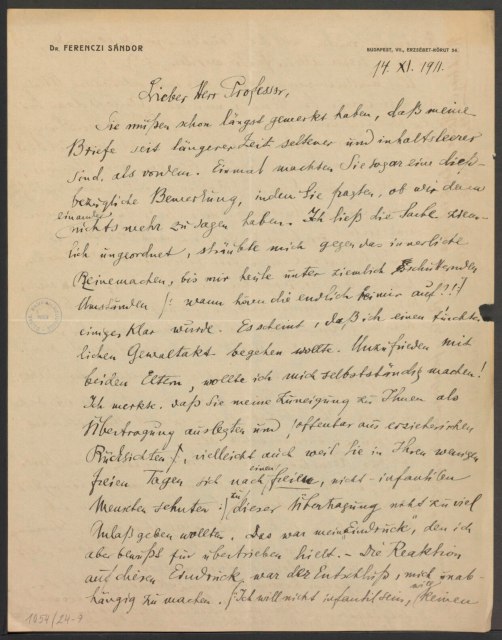 Dr. FERENCZI SÁNDOR
BUDAPEST, VII., ERZSÉBET-KÖRUT 54.
14. XI. 1911.
Lieber Herr Professor,
Sie müßen schon längst gemerkt haben, daß meine
Briefe seit längerer Zeit seltener und inhaltsleerer
sind, als vordem. Einmal machten Sie sogar eine dies-
bezügliche Bemerkung, indem Sie fragten, ob wir denn
einander
nichts mehr zu sagen haben. Ich ließ die Sache ziem-
lich ungeordnet, sträubte mich gegen das innerliche
Reinemachen, bis mir heute unter ziemlich erschütternden
Umständen /: wann hören die endlich bei mir auf?!!/
einiges klar wurde. Es scheint, daß ich einen fürchter-
lichen Gewaltakt begehen wollte. Unzufrieden mit
beiden Eltern, wollte ich mich selbstständig machen!
Ich merkte, daß Sie meine Zuneigung zu Ihnen als
Übertragung auslegten und /offenbar aus erzieherischen
Rücksichten/, vielleicht auch weil Sie in Ihren wenigen
freien Tagen sich nach einem freien, nicht-infantilen
Menschen sehnten :/ zu dieser Übertragung nicht zu viel
Anlaß geben wollten. Das war mein „Eindruck", den ich
aber bewußt für übertrieben hielt. – Die Reaktion
auf diesen Eindruck war der Entschluß, mich unab-
hängig zu machen. /: Ich will nicht infantil sein, will keinen
1054/24-9